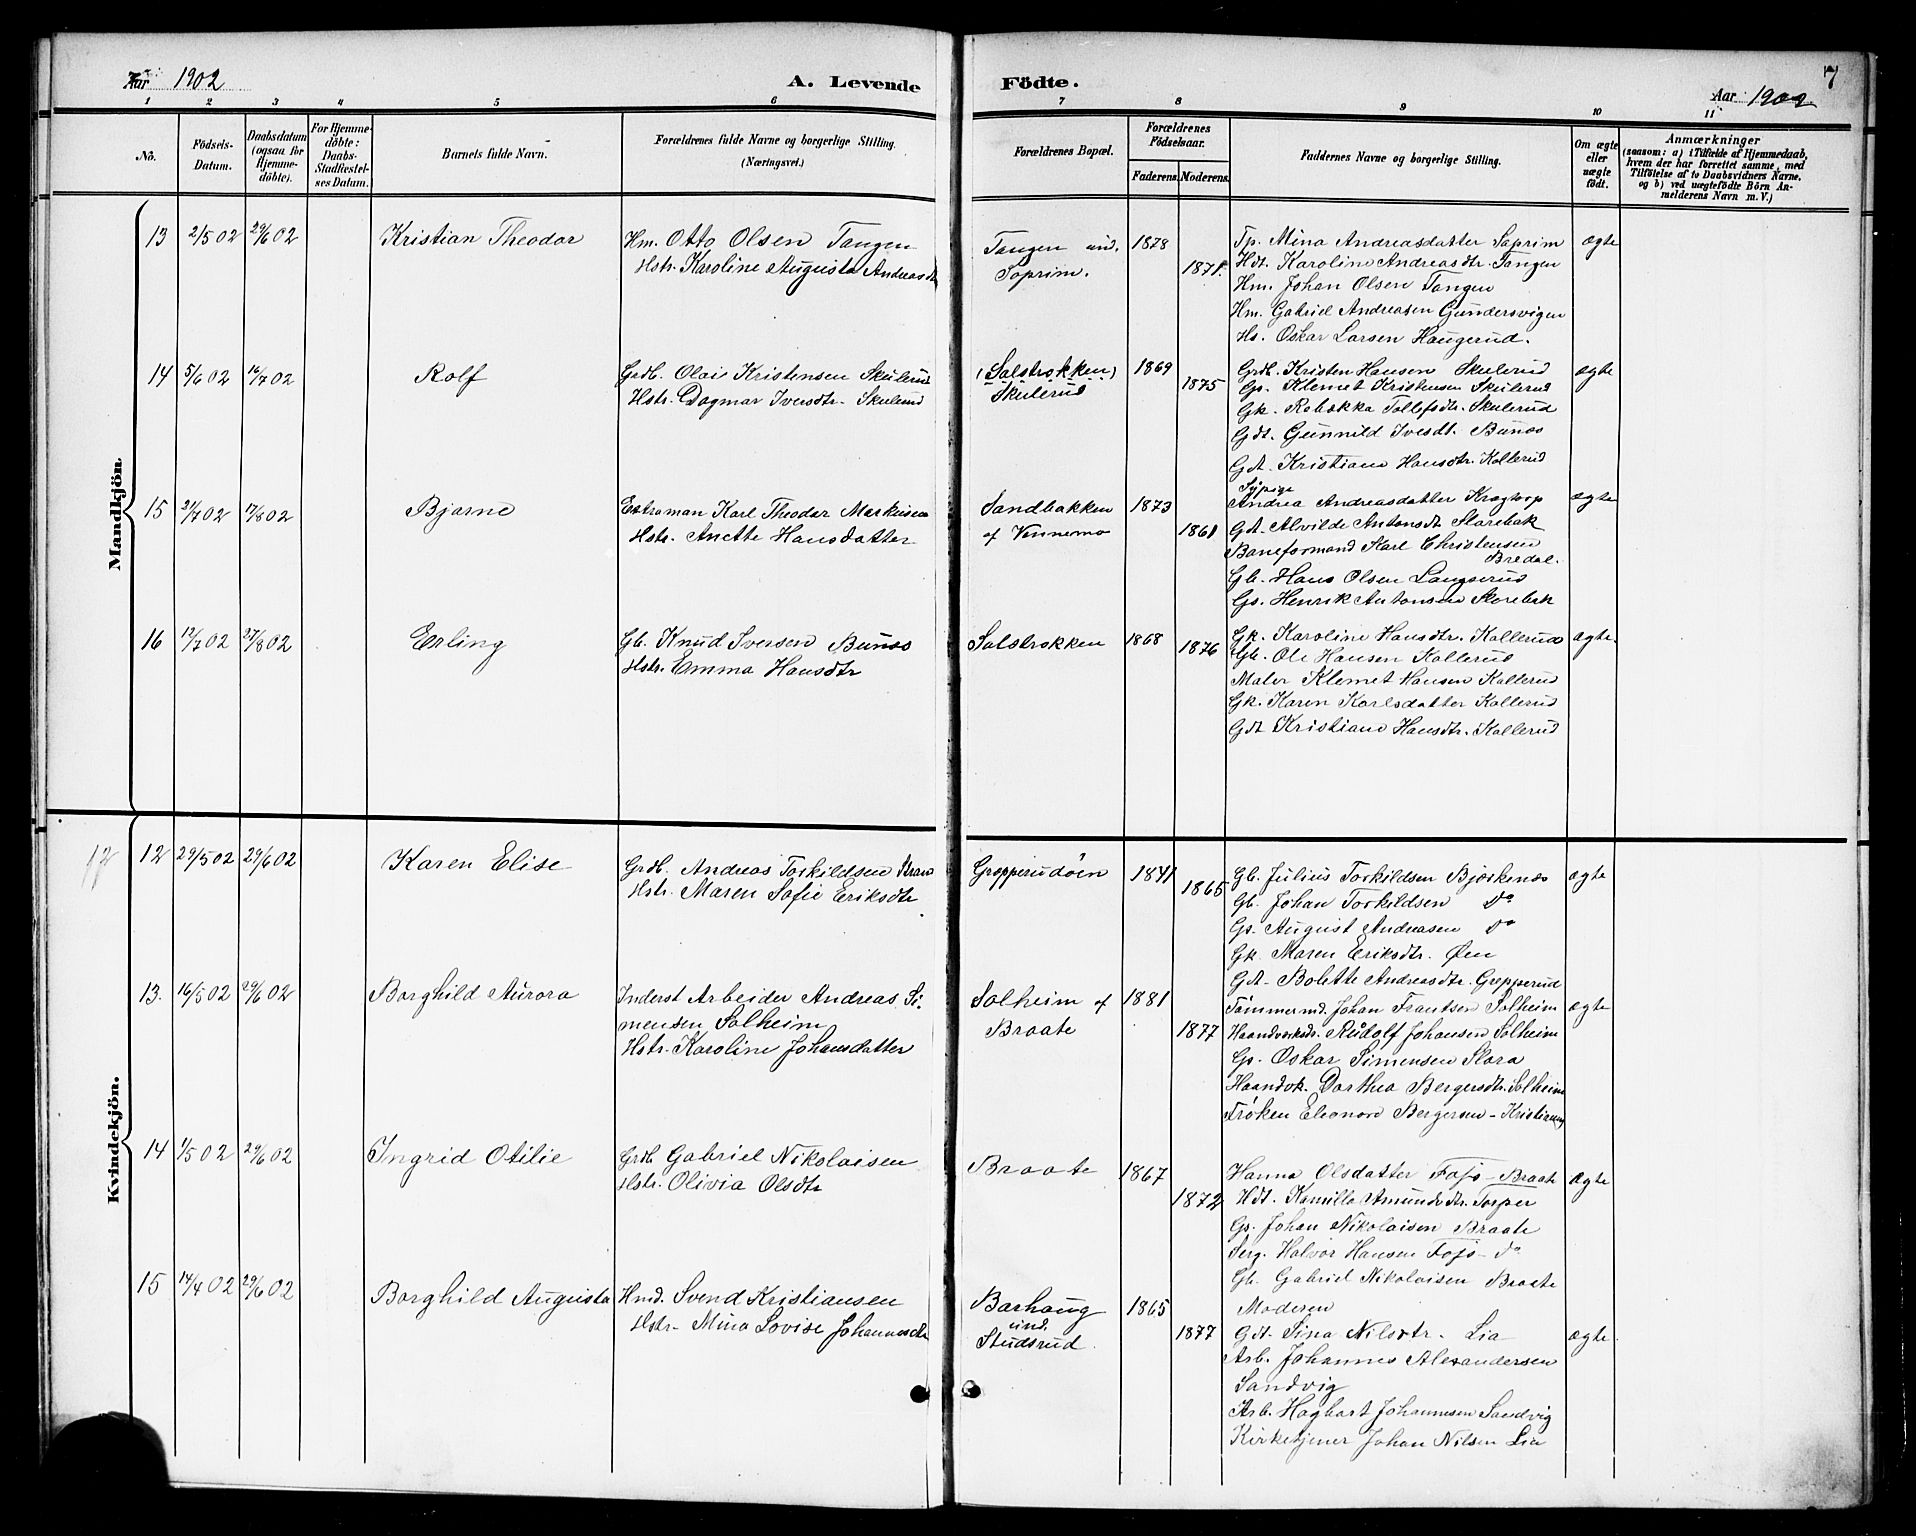 Aar 1902
A. Levende Födte.
7
Aar 1902
1 2 3 4 5 6 7 8 9 10 11
No.
Födsels-Datum.
Daabsdatum (ogsaa for Hjemme-döbte).
For Hjemme-döbte: Daabs-Stadfæstel-ses Datum.
Barnets fulde Navn.
Forældrenes fulde Navne og borgerlige Stilling. (Næringsvei.)
Forældrenes Bopæl.
Forældrenes Födselsaar.
Faderens. Moderens.
Faddernes Navne og borgerlige Stilling.
Om ægte eller uægte födt.
Anmærkninger
(saasom: a) i Tilfælde af Hjemmedaab,
hvem der har forrettet samme, med
Tilföielse af to Daabsvidners Navne,
og b) ved uægtefödte Börn An-
melderens Navn m. V.)
Mandkjön.
13 2/5 02 29/6 02 Kristian Theodor
Hm. Otto Olsen Tangen
Hstr. Karoline Augusta Andreasdtr
Tangen und.
Soprim.
1878
1871.
Tp. Mina Andreasdatter Soprim
Hdt. Karoline Andreasdtr. Tangen
Hm. Johan Olsen Tangen
Hm. Gabriel Andreasen Gundersvigen
Hs. Oskar Larsen Haugerud.
ægte
14 5/6 02 16/7 02 Rolf
Grdb. Olai Kristensen Skulerud
Hstr. Dagmar Iversdtr. Skulerud
(Solstrokken)
Skulerud
1869
1875
Grdb. Kristen Hansen Skulerud
Gs. Klemet Kristensen Skulerud
Gk. Rebekka Tollefsdtr. Skulerud
Gdt. Gunnild Ivesdt. Bunes
Gdt. Kristiane Hansdtr. Kollerud
ægte
15 2/7 02 17/8 02 Bjarne
Extraman Karl Theodor Markusen
Hstr. Anette Hansdatter
Sandbakken
af Vennemo
1873
1861
Sypige
Andrea Andreasdatter Kragtorp
Gdt. Alvilde Antonsdt Slorebek
Baneformand Karl Christensen
Bredal.
Gb. Hans Olsen Langerud
Gs. Henrik Antonsen Slorebek
ægte
16 12/7 02 27/8 02 Erling
Gb. Knud Iversen Bunes
Hstr. Emma Hansdtr
Solstrokken
1868
1876
Gk. Karoline Hansdtr. Kollerud
Gb. Ole Hansen Kollerud
Maler Klemet Hansen Kollerud
Gk. Karen Karlsdatter Kollerud
Gdt Kristiane Hansdtr. Kollerud
ægte.
Kvindekjön.
12
12 29/5 02 29/6 02 Karen Elise
Grdb. Andreas Torkildsen
Hstr. Maren Sofie Eriksdtr
Grepperudøen
1841
1865
Gb. Julius Torkildsen Bjørkenes
Gb. Johan Torkildsen do
Gs. August Andreasen do
Gk. Maren Eriksdtr. Øen
Gdt. Bolette Andreasdtr. Grepperud
ægte
13. 16/5 02 29/6 02 Borghild Aurora
Inderst Arbeider Andreas Si-
mensen Solheim
Hstr. Karoline Johansdatter
Solheim af
Braate
1881
1877
Tømmermd. Johan Frantsen Solheim
Haandverksdr. Rudolf Johansen Solheim
Gs. Oskar Simensen Slora
Haandvk. Dorthea Bergersdtr. Solheim
Frøken Eleonore Bergersen - Kristiania
ægte
14 1/5 02 29/6 02 Ingrid Otilie
Grdb Gabriel Nikolaisen
Hstr. Olivia Olsdtr
Braate
1867
1872
Hanna Olsdatter Fosjø - Braate
Hdt. Kamilla Amundsdtr. Torper
Gs. Johan Nikolaisen Braate
Serg. Halvor Hansen Fosjø - do
Gb. Gabriel Nikolaisen Braate
ægte
15 14/4 02 29/6 02 Borghild Augusta
Hmd. Svend Kristiansen
Hstr. Mina Lovise Johannesdtr
Barhaug
und.
Studsrud.
1865
1877
Moderen
Gdt. Sina Nilsdtr. Lia
Arb. Johannes Alexandersen
Sandvig
Arb. Hagbart Johannesen Sandvig
Kirketjener Johan Nilsen Lia
ægte